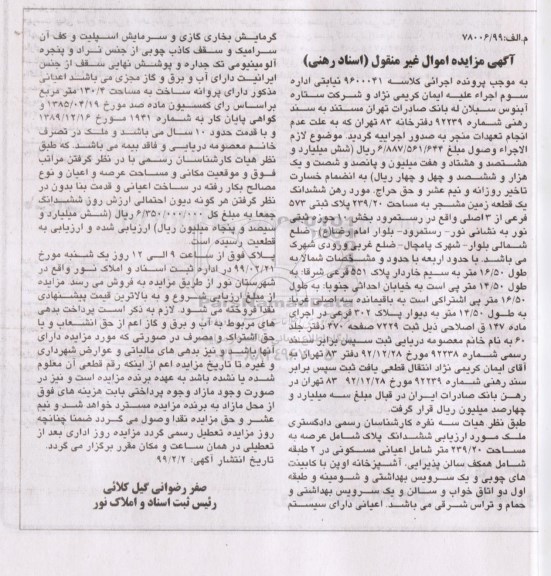 م.الف:۷۸۰۰۶/۹۹
آگهی مزایده اموال غیر منقول (اسناد رهنی)
به موجب پرونده اجرائی کلاسه ۹۶۰۰۰۴۱ نیابتی اداره
سوم اجراء علیه ایمان کریمی نژاد و شرکت ستاره
آینوس سبلان له بانک صادرات تهران مستند به سند
رهنی شماره ۹۲۲۳۹ دفترخانه ۸۳ تهران که به علت عدم
انجام تعهدات منجر به صدور اجراییه گردید. موضوع لازم
الاجراء وصول مبلغ ۶/۸۸۷/۵۶۱/۶۴۴ ریال (شش میلیارد و
هشتصد و هشتاد و هفت میلیون و پانصد و شصت و یک
هزار و ششصد و چهل و چهار ریال) به انضمام خسارت
تاخیر روزانه و نیم عشر و حق حراج. مورد رهن ششدانگ
یک قطعه زمین مشجر به مساحت ۲۳۹/۲۰ پلاک ثبتی ۵۷۳
فرعی از ۳ اصلی واقع در رستمرود بخش ۱ حوزه ثبتی
نور به نشانی نور- رستمرود- بلوار امام رضا(ع)- ضلع
شمالی بلوار- شهرک پامچال- ضلع غربی ورودی شهرک
می باشد. با حدود اربعه با حدود و مشخصات شمالا به
طول ۱۶/۵۰ متر به سیم خاردار پلاک ۵۵۱ فرعی شرقا: به
طول ۱۴/۵۰ متر پی است به خیابان احداثی جنوبا: به طول
۱۶/۵۰ متر پی اشتراکی است به باقیمانده سه اصلی غربا:
به طول ۱۴/۵۰ متر به دیوار پلاک ۳۰۲ فرعی در اجرای
ماده ۱۴۷ ق اصلاحی ذیل ثبت ۷۲۲۹ صفحه ۴۷۰ دفتر جلد
۶۰ به نام خانم معصومه دریایی ثبت سپس برابر سند
رسمی شماره ۹۲۲۳۸ مورخ ۹۲/۱۲/۲۸ دفتر ۸۳ تهران به
آقای ایمان کریمی نژاد انتقال قطعی یافت ثبت سپس برابر
سند رهنی شماره ۹۲۲۳۹ مورخ ۹۲/۱۲/۲۸ ۸۳ تهران در
رهن بانک صادرات ایران در قبال مبلغ سه میلیارد و
چهارصد میلیون ریال قرار گرفت.
طبق نظر هیات سه نفره کارشناسان رسمی دادگستری
ملک مورد ارزیابی ششدانگ پلاک شامل عرصه به
مساحت ۲۳۹/۲۰ متر شامل اعیانی مسکونی در ۲ طبقه
شامل همکف سالن پذیرایی، آشپزخانه اوپن با کابینت
های چوبی و یک سرویس بهداشتی و شومینه و طبقه
اول دو اتاق خواب و سالن و یک سرویس بهداشتی و
حمام و تراس شرقی می باشد. اعیانی دارای سیستم
گرمایش بخاری گازی و سرمایش اسپلیت و کف آن
سرامیک و سقف کاذب چوبی از جنس نراد و پنجره
آلومینیومی تک جداره و پوشش نهایی سقف از جنس
ایرانیت دارای آب و برق و گاز مجزی می باشد اعیانی
مذکور دارای پروانه ساخت به مساحت ۱۳۰/۴ متر مربع
براساس رای کمسیون ماده صد مورخ ۱۳۸۵/۰۴/۱۹ و
گواهی پایان کار به شماره ۱۹۳۱ مورخ ۱۳۸۹/۱۲/۱۶
و با قدمت حدود ۱۰ سال می باشد و ملک در تصرف
خانم معصومه دریایی و فاقد بیمه می باشد. که طبق
نظر هیات کارشناسان رسمی با در نظر گرفتن مراتب
فوق و موقعیت مکانی و مساحت عرصه و اعیان و نوع
مصالح بکار رفته در ساخت اعیانی و قدمت بنا بدون در
نظر گرفتن هر گونه دیون احتمالی ارزش روز ششدانگ
جمعا به مبلغ کل ۶/۳۵۰/۰۰۰/۰۰۰ ریال (شش میلیارد و
سیصد و پنجاه میلیون ریال) ارزیابی شده و ارزیابی به
قطعیت رسیده است.
پلاک فوق از ساعت ۹ الی ۱۲ روز یک شنبه مورخ
۹۹/۰۲/۲۱ در اداره ثبت اسناد و املاک نور واقع در
شهرستان نور از طریق مزایده به فروش می رسد مزایده
از مبلغ ارزیابی شروع و به بالاترین قیمت پیشنهادی
نقدا فروخته می شود. لازم به ذکر است پرداخت بدهی
های مربوط به آب و برق و گاز اعم از حق انشعاب و یا
حق اشتراک و مصرف در صورتی که مورد مزایده دارای
آنها باشد و نیز بدهی های مالیاتی و عوارض شهرداری
و غیره تا تاریخ مزایده اعم از اینکه رقم قطعی آن معلوم
شده یا نشده باشد به عهده برنده مزایده است و نیز در
صورت وجود مازاد وجوه پرداختی بابت هزینه های فوق
از محل مازاد به برنده مزایده مسترد خواهد شد و نیم
عشر و حق مزایده نقدا وصول می گردد ضمنا چنانچه
روز مزایده تعطیل رسمی گردد مزایده روز اداری بعد از
تعطیلی در همان ساعت و مکان مقرر برگزار می گردد.
تاریخ انتشار آگهی: ۹۹/۲/۲
صفر رضوانی گیل کلائی
رئیس ثبت اسناد و املاک نور